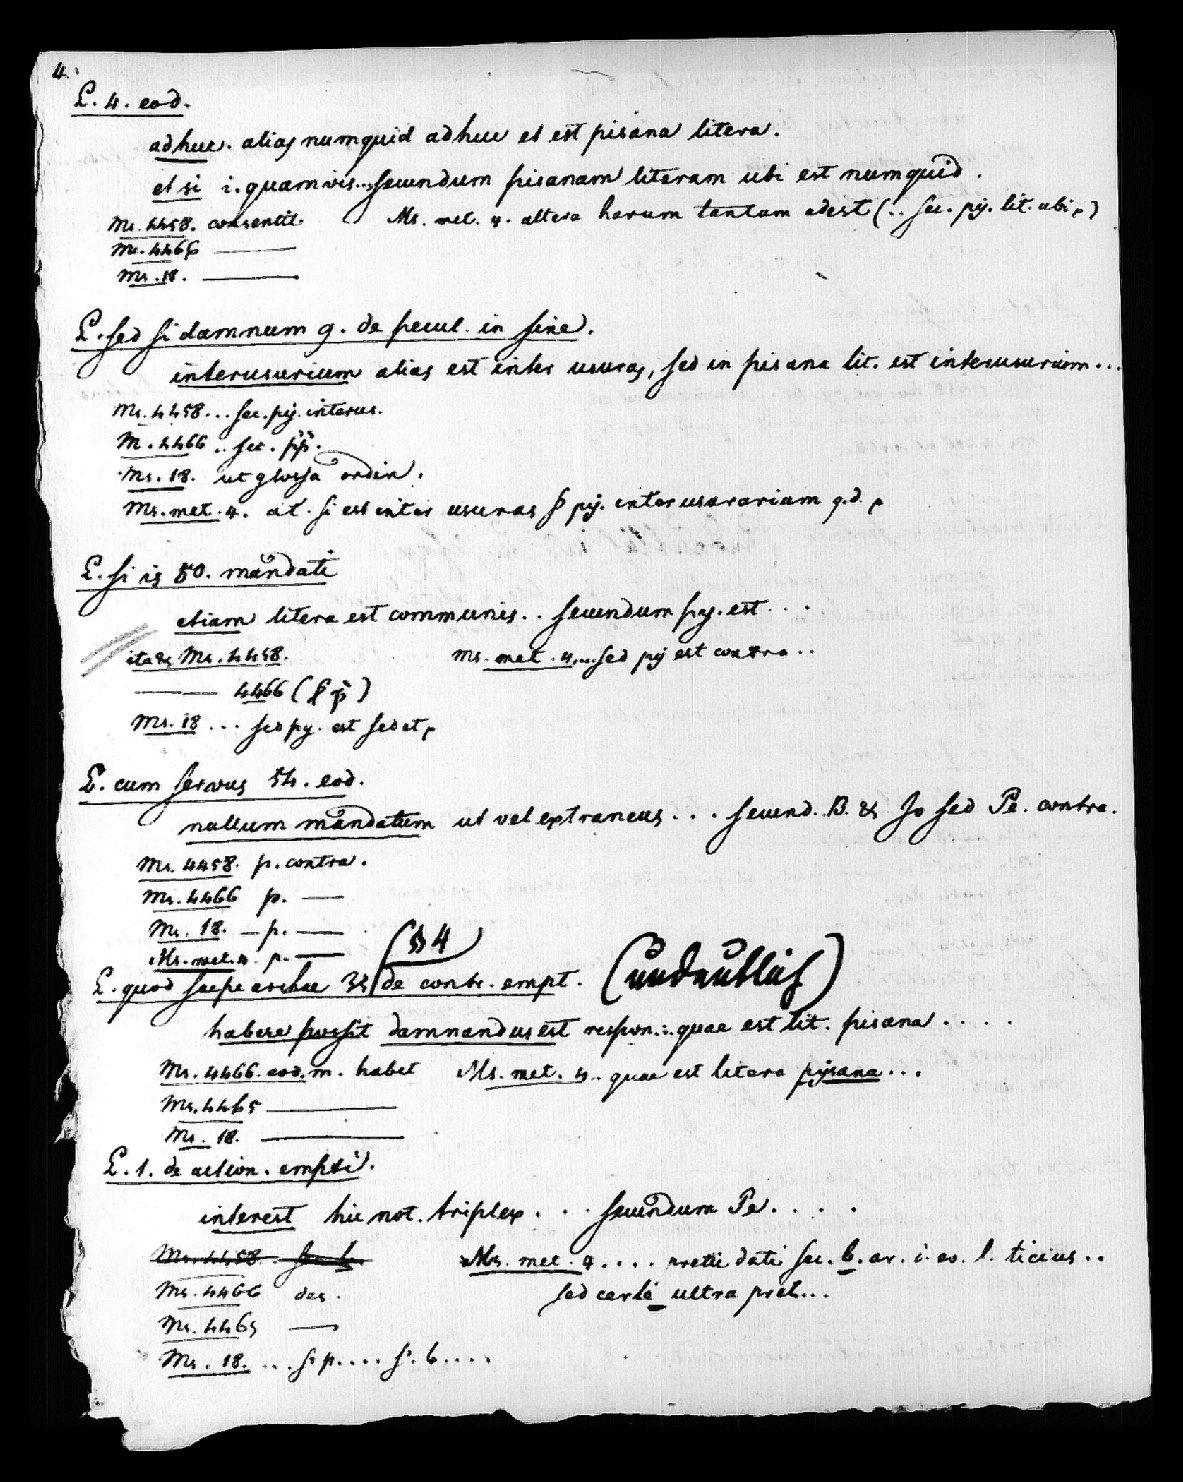 4.
L. 4. eod.
adhuc. alias numquid adhuc et est pisana litera.
et si i. quamvis... secundum pisanam literam ubi est numquid.
Ms. 4458. consentit. Ms. met. 4. altera harum tantum adest (.. sec. pij. lit. ubi)
Ms. 4466 ———
Ms. 18. ———
L. sed si damnum 9. de pecul. in fine.
interusurium alias est inter usuras, sed in pisana lit. est interusurium...
Ms. 4458... sec. pij. interus.
M. 4466 .. sec. pp.
Ms. 18. ut glossa ordin.
Ms. met. 4. at. si est inter usuras pij. interusurarium q.d.
L. si is 50. mandati
etiam litera est communis.. secundum py. est...
ita & Ms. 4458. Ms. met. 4.... sed pij est contra..
—— 4466 (
Ms. 18 ... sed py. est sed et
L. cum servus 54. eod.
nullum mandatum ut vel extraneus... secund. B. & Jo sed Pe. contra.
Ms. 4458. p. contra.
Ms. 4466 p. ——
Ms. 18. — p. ——
Ms. met. 4. p. ——
(§ 4)
L. quod saepe arrhae 35 de contr. empt. (undeutlich)
habere possit damnandus est respon.:. quae est lit. pisana....
Ms. 4466. eod. m. habet Ms. met. 4. quae est litera pijsana...
Ms. 4465 ———
Ms. 18. ———
L. 1. de action. empti.
interest hic not. triplex... secundum Pe....
Ms. 4458. Ms. met. 4.... pretii dati sec. b. ar. i. eo. l. ticius..
Ms. 4466 des. sed certe ultra pret...
Ms. 4465 ——
Ms. 18. ... s. p.... s. b....